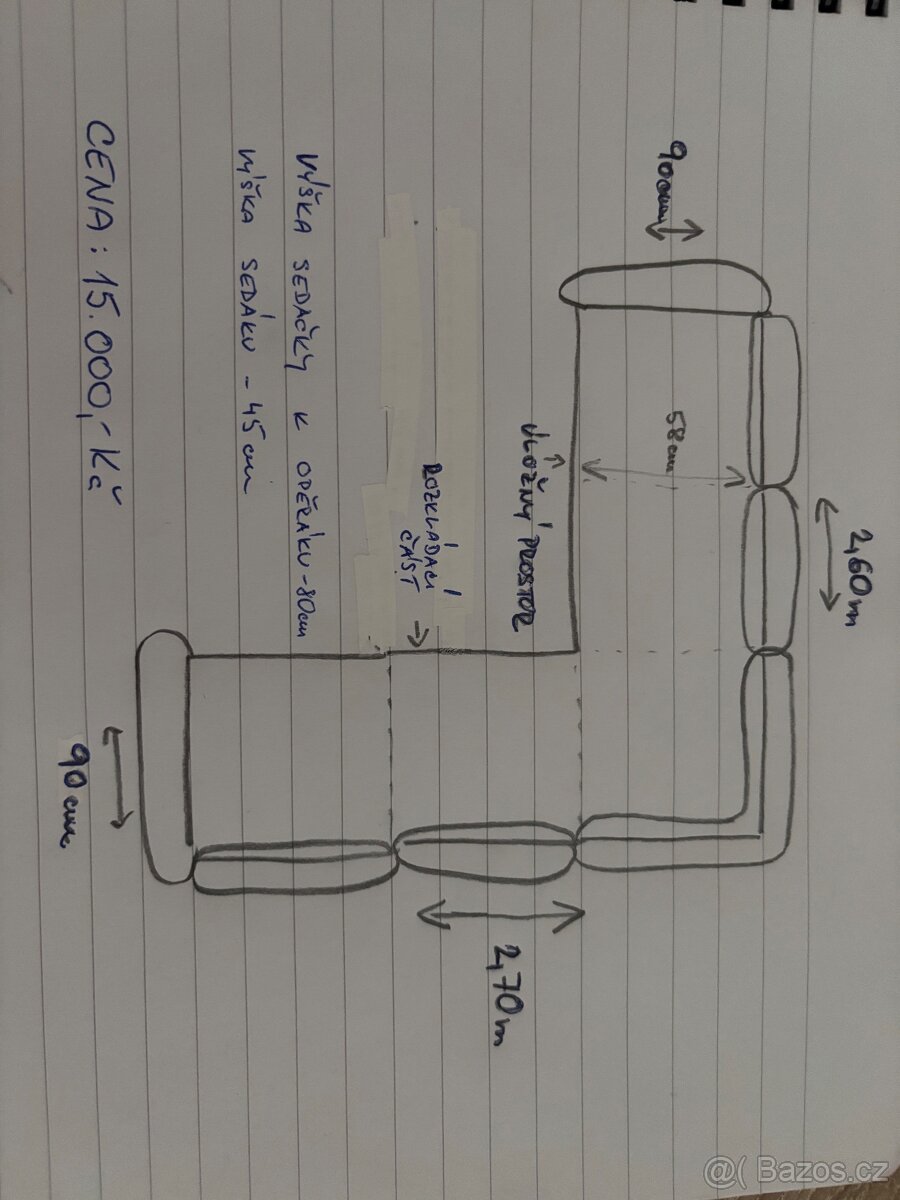 2,60m
90cm
58cm
ÚLOŽNÝ PROSTOR
2,70m
ROZKLÁDACÍ
ČÁST
VÝŠKA SEDAČKY K OPĚRÁKU - 80cm
VÝŠKA SEDÁKU - 45cm
90cm
CENA: 15.000,- Kč
@( Bazos.cz